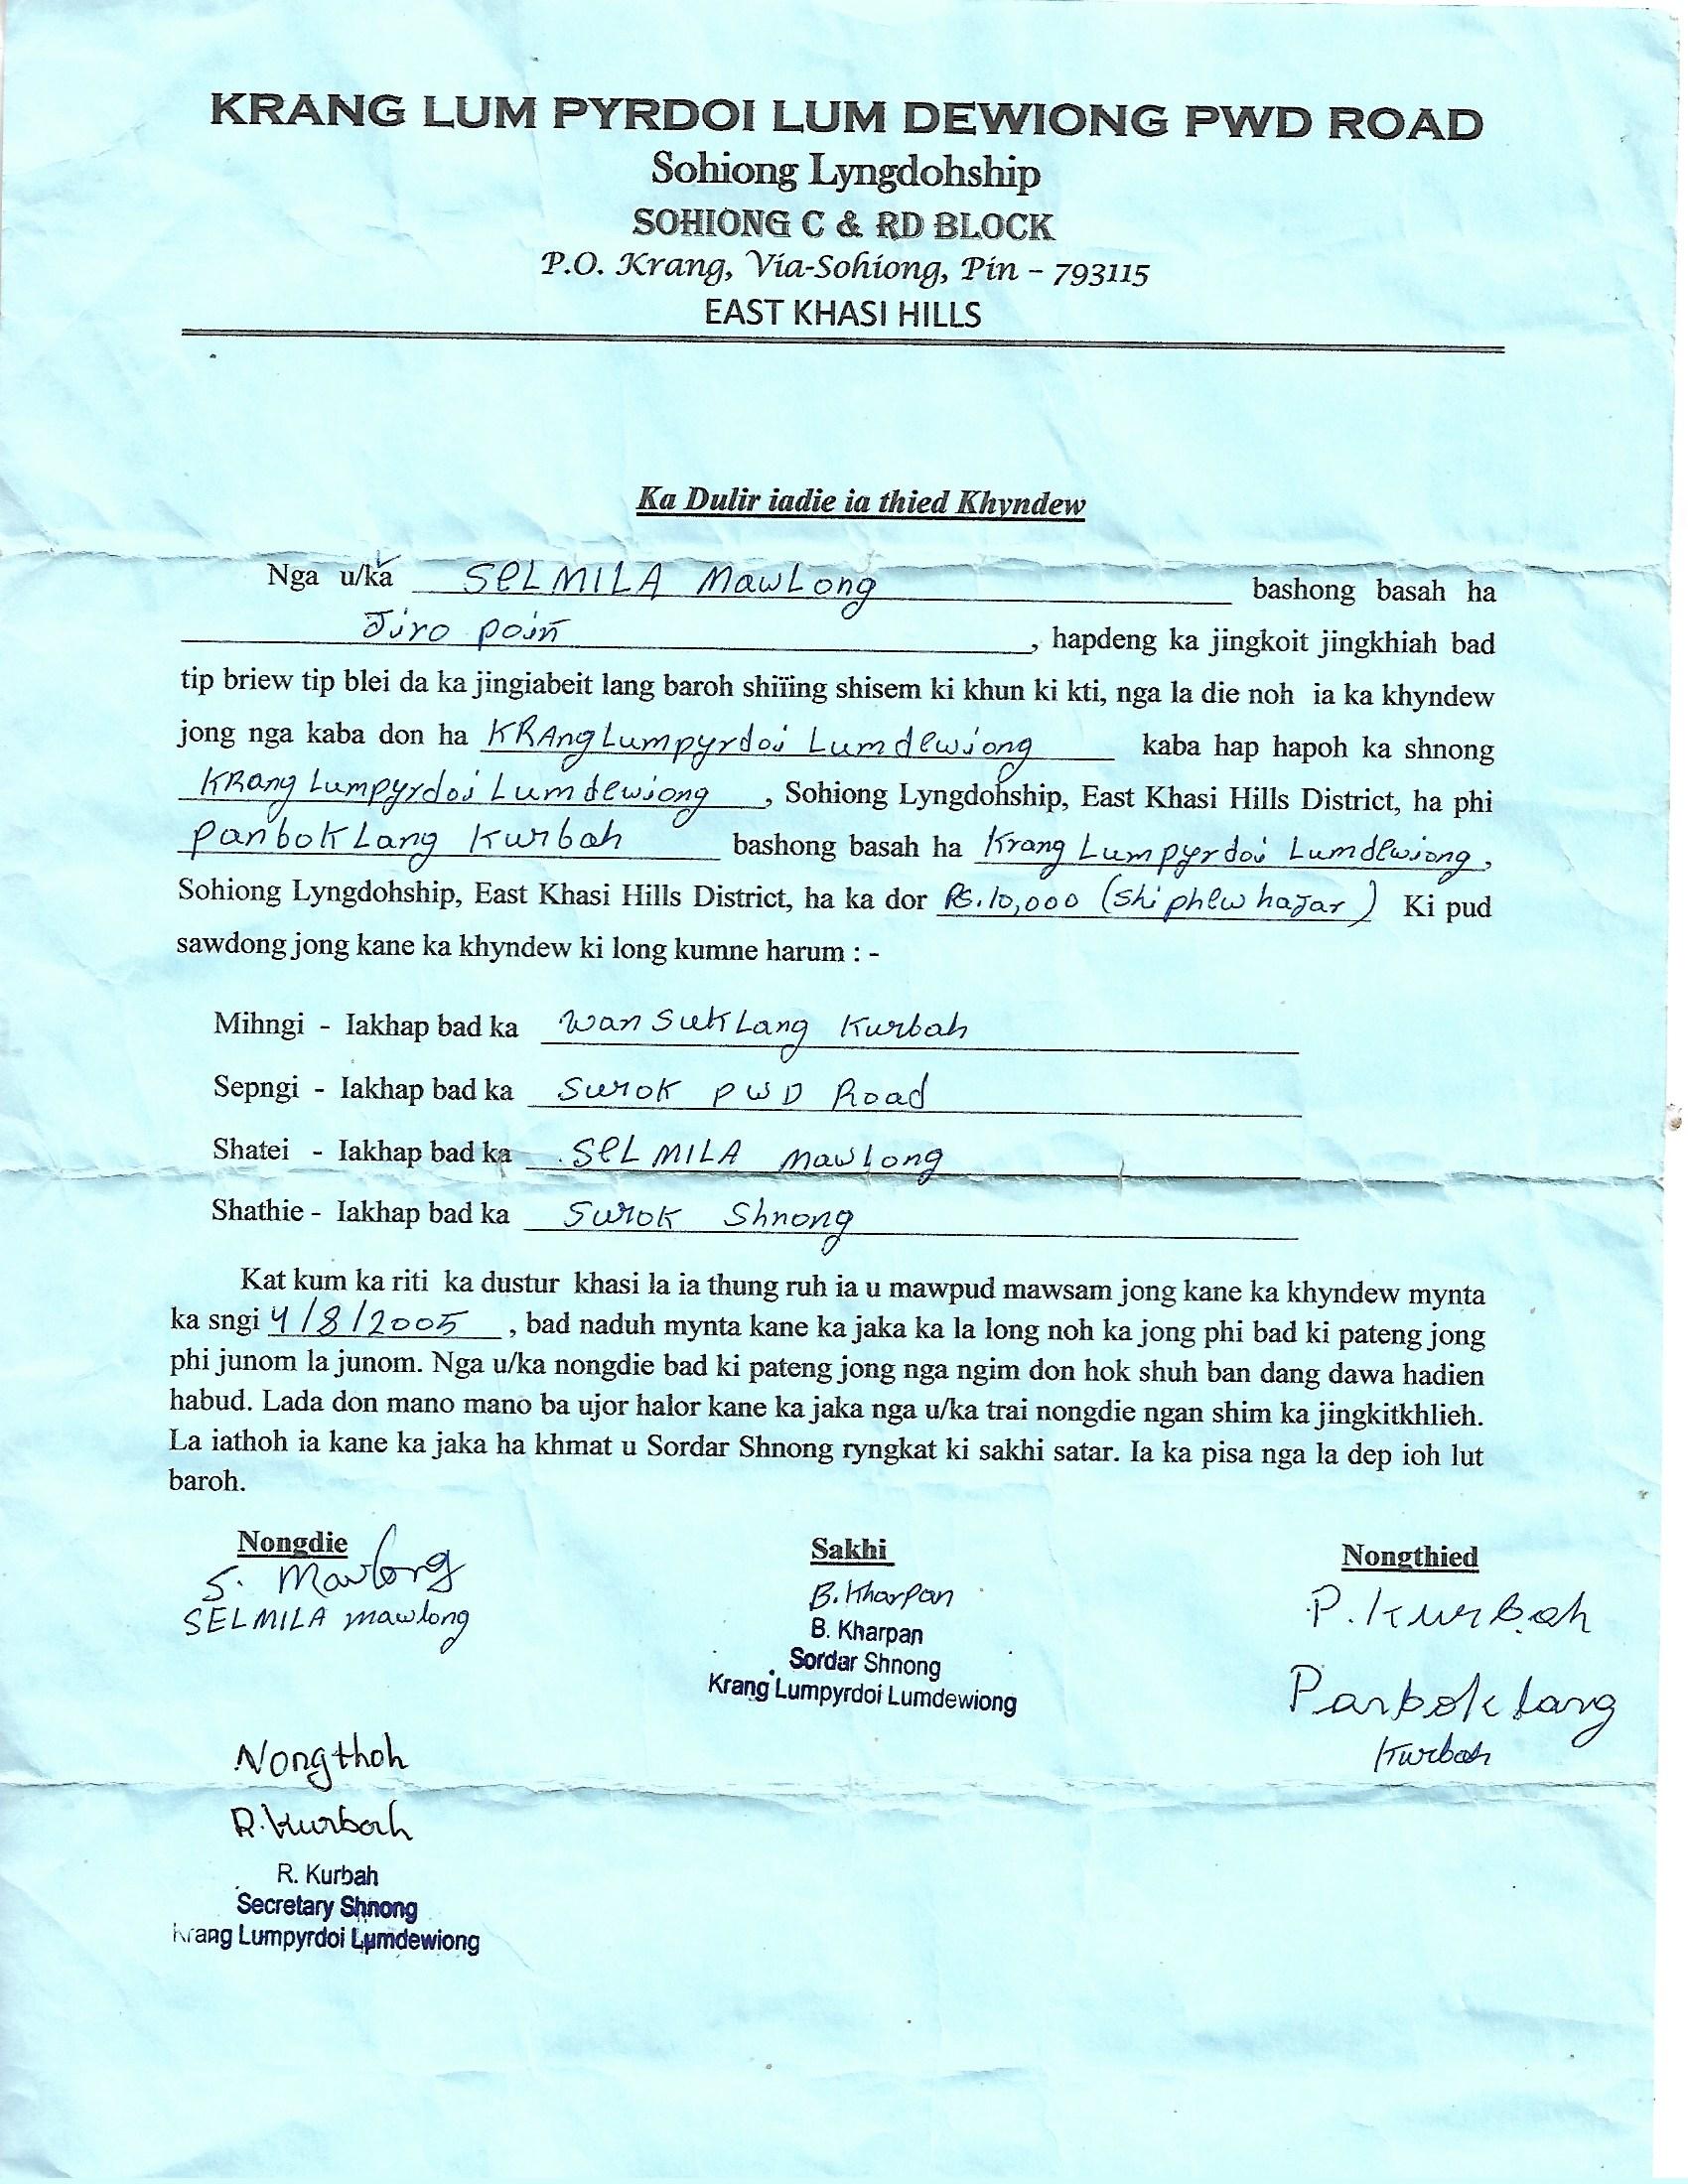 KRANG LUM PYRDOI LUM DEWIONG PWD ROAD
Sohiong Lyngdohship
SOHIONG C & RD BLOCK
P.O. Krang, Via-Sohiong, Pin - 793115
EAST KHASI HILLS
Ka Dulir iadie ia thied Khyndew
Nga u/ka SELMILA Mawlong bashong basah ha
Jiro poin, hapdeng ka jingkoit jingkhiah bad
tip briew tip blei da ka jingiabeit lang baroh shiïing shisem ki khun ki kti, nga la die noh ia ka khyndew
jong nga kaba don ha KRAng Lumpyrdoi Lumdewiong kaba hap hapoh ka shnong
KRang Lumpyrdoi Lumdewiong, Sohiong Lyngdohship, East Khasi Hills District, ha phi
PanbokLang Kurbah bashong basah ha Krang Lumpyrdoi Lumdewiong,
Sohiong Lyngdohship, East Khasi Hills District, ha ka dor Rs.10,000 (Shi phew hajar) Ki pud
sawdong jong kane ka khyndew ki long kumne harum : -
Mihngi - Iakhap bad ka WanSukLang Kurbah
Sepngi - Iakhap bad ka Surok PWD Road
Shatei - Iakhap bad ka SELMILA Mawlong
Shathie - Iakhap bad ka Surok Shnong
Kat kum ka riti ka dustur khasi la ia thung ruh ia u mawpud mawsam jong kane ka khyndew mynta
ka sngi 4/8/2005, bad naduh mynta kane ka jaka ka la long noh ka jong phi bad ki pateng jong
phi junom la junom. Nga u/ka nongdie bad ki pateng jong nga ngim don hok shuh ban dang dawa hadien
habud. Lada don mano mano ba ujor halor kane ka jaka nga u/ka trai nongdie ngan shim ka jingkitkhlieh.
La iathoh ia kane ka jaka ha khmat u Sordar Shnong ryngkat ki sakhi satar. Ia ka pisa nga la dep ioh lut
baroh.
Nongdie Sakhi Nongthied
S. Mawlong B. Kharpan P. Kurbah
SELMILA mawlong B. Kharpan
Sordar Shnong
Krang Lumpyrdoi Lumdewiong
Panboklang
Kurbah
Nongthoh
R. Kurbah
R. Kurbah
Secretary Shnong
Krang Lumpyrdoi Lumdewiong